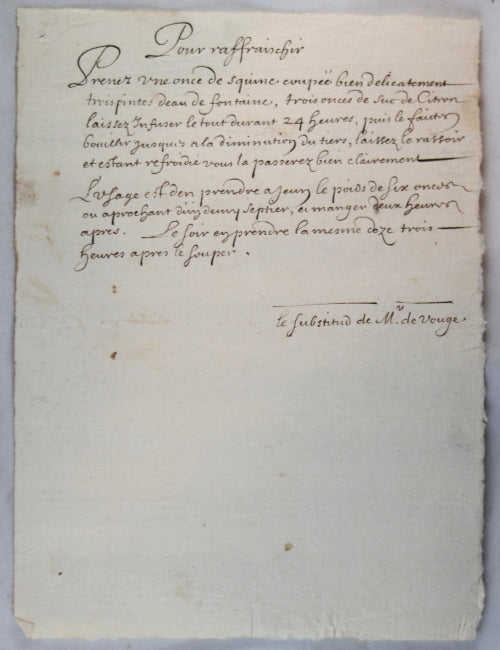 Pour raffraischir
Prenez vne once de squine coupée bien delicatement
trois pintes deau de fontaine, trois onces de suc de Citron
laissez Infuser le tout durant 24 heures, puis le faites
bouillir jusques a la diminution du tiers, laissez le rassoir
et estant refroidie vous la passerez bien clairement
L'vsage est den prendre a jeun le poids de six onces
ou aprochant dun demy septier, et manger deux heures
apres. Le soir en prendre la mesme doze trois
heures apres le souper.
le substitud de Mr. de vouge.